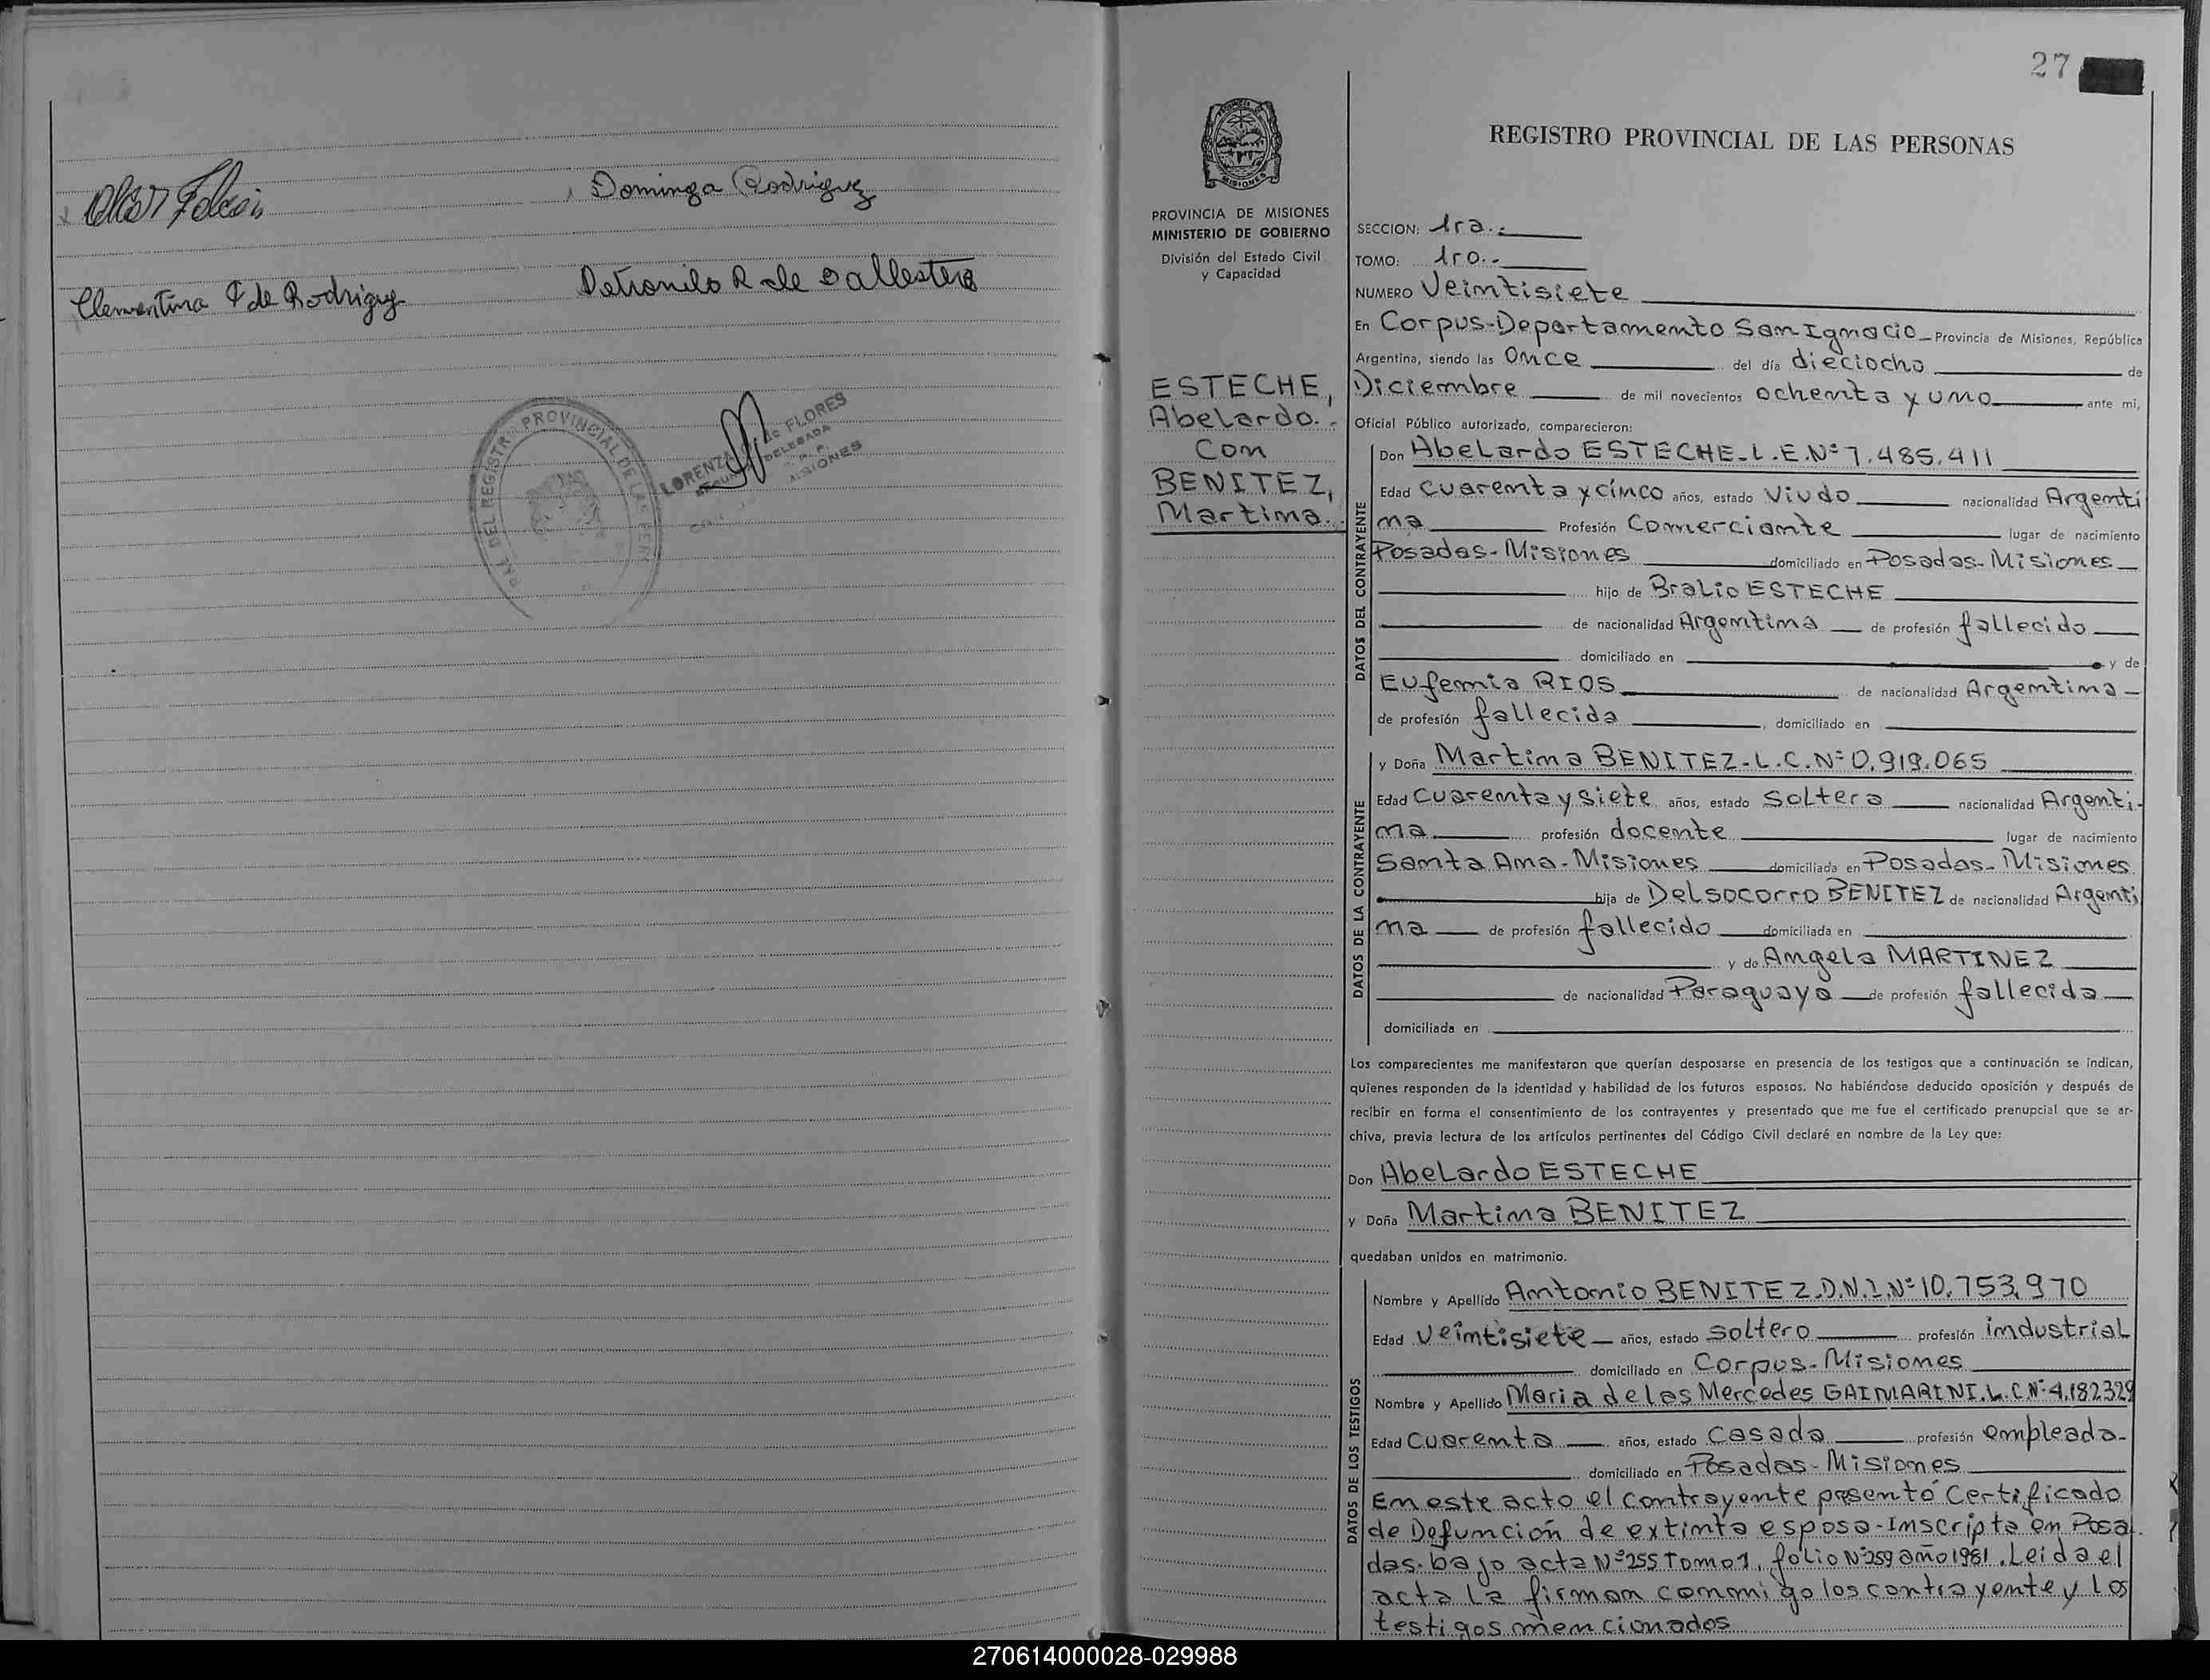 Dominga Rodriguez
Clementina F de Rodriguez
Petronila R de Ballestero
PROVINCIAL DE LAS PER
DEL REGISTRO
LORENZA de FLORES
DELEGADA
MISIONES
27
MISIONES
PROVINCIA DE MISIONES
MINISTERIO DE GOBIERNO
División del Estado Civil
y Capacidad
ESTECHE,
Abelardo.-
Con
BENITEZ,
Martina.
REGISTRO PROVINCIAL DE LAS PERSONAS
SECCION: 1ra.-
TOMO: 1ro.-
NUMERO Veintisiete
En Corpus-Departamento San Ignacio - Provincia de Misiones, República
Argentina, siendo las Once del día dieciocho de
Diciembre de mil novecientos ochenta y uno ante mi,
Oficial Público autorizado, comparecieron:
DATOS DEL CONTRAYENTE
Don Abelardo ESTECHE-L.E.Nº 7.485.411
Edad Cuarenta y cinco años, estado Viudo nacionalidad Argenti
na Profesión Comerciante lugar de nacimiento
Posadas-Misiones domiciliado en Posadas-Misiones
hijo de Bralio ESTECHE
de nacionalidad Argentina de profesión fallecido
domiciliado en y de
Eufemia RIOS de nacionalidad Argentina
de profesión fallecida, domiciliado en
DATOS DE LA CONTRAYENTE
y Doña Martina BENITEZ-L.C.Nº 0.919.065
Edad Cuarenta y siete años, estado Soltera nacionalidad Argenti-
na profesión docente lugar de nacimiento
Santa Ana-Misiones domiciliada en Posadas-Misiones
hija de Delsocorro BENITEZ de nacionalidad Argenti
na de profesión fallecido domiciliada en
y de Angela MARTINEZ
de nacionalidad Paraguaya de profesión fallecida
domiciliada en
Los comparecientes me manifestaron que querían desposarse en presencia de los testigos que a continuación se indican,
quienes responden de la identidad y habilidad de los futuros esposos. No habiéndose deducido oposición y después de
recibir en forma el consentimiento de los contrayentes y presentado que me fue el certificado prenupcial que se ar-
chiva, previa lectura de los artículos pertinentes del Código Civil declaré en nombre de la Ley que:
Don Abelardo ESTECHE
y Doña Martina BENITEZ
quedaban unidos en matrimonio.
DATOS DE LOS TESTIGOS
Nombre y Apellido Antonio BENITEZ.D.N.I.Nº 10.753.970
Edad Veintisiete años, estado Soltero profesión industrial
domiciliado en Corpus-Misiones
Nombre y Apellido Maria de las Mercedes GAIMARINI.L.C.Nº 4.182329
Edad Cuarenta años, estado Casada profesión empleada-
domiciliado en Posadas-Misiones
En este acto el contrayente presentó Certificado
de Defunción de extinta esposa-Inscripta en Posa-
das-bajo acta Nº 255 Tomo 1, folio Nº 259 año 1981. Leida el
acta la firman conmigo los contrayente y los
testigos mencionados
270614000028-029988